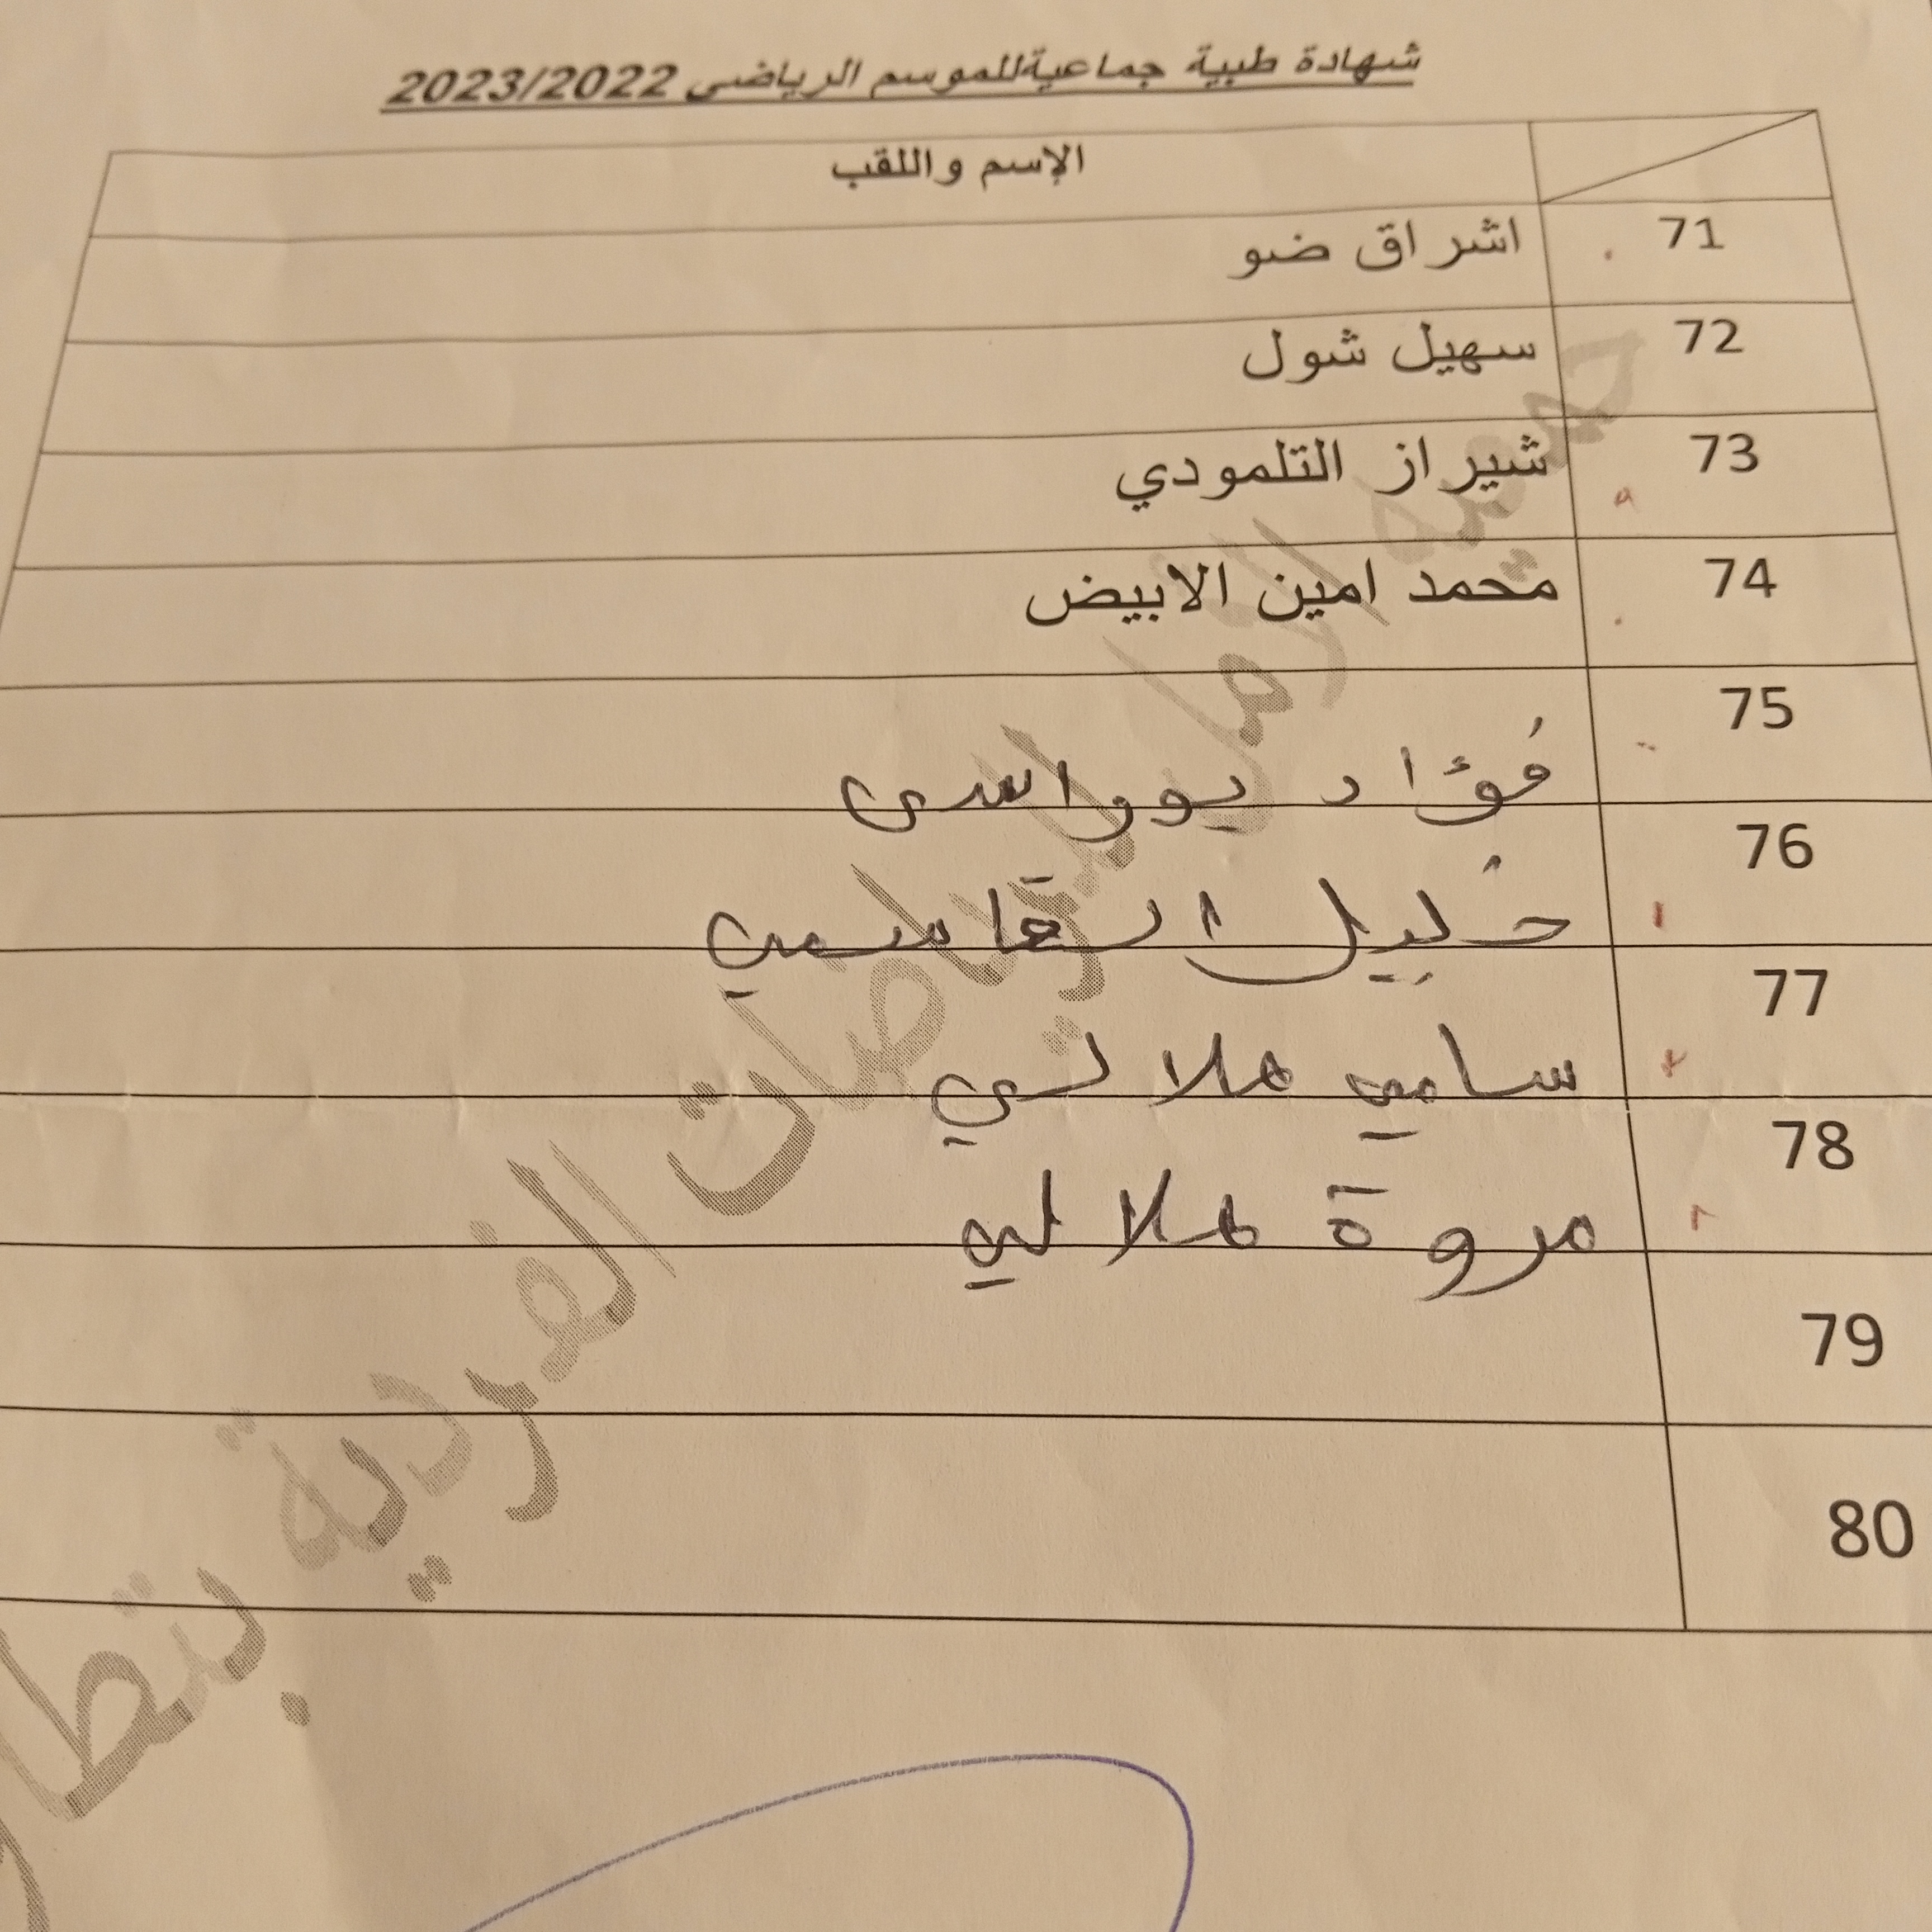 شهادة طبية جماعيةللموسم الرياضي 2023/2022
الإسم واللقب
71 اشراق ضو
72 سهيل شول
73 شيراز التلمودي
74 محمد امين الابيض
75 فؤاد
76 خليل القاسمي
77 سامي هلالي
78 مروة هلالي
79
80
الفردية